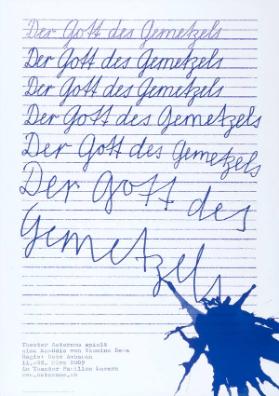 Der Gott des Gemetzels
Der Gott des Gemetzels
Der Gott des Gemetzels
Der Gott des Gemetzels
Der Gott des Gemetzels
Der Gott des
Gemetzels
Theater Aeternam spielt
eine Komödie von Yasmina Reza
Regie: Reto Ambauen
März 2009
im Theater Pavillon Luzern
www.aeternam.ch